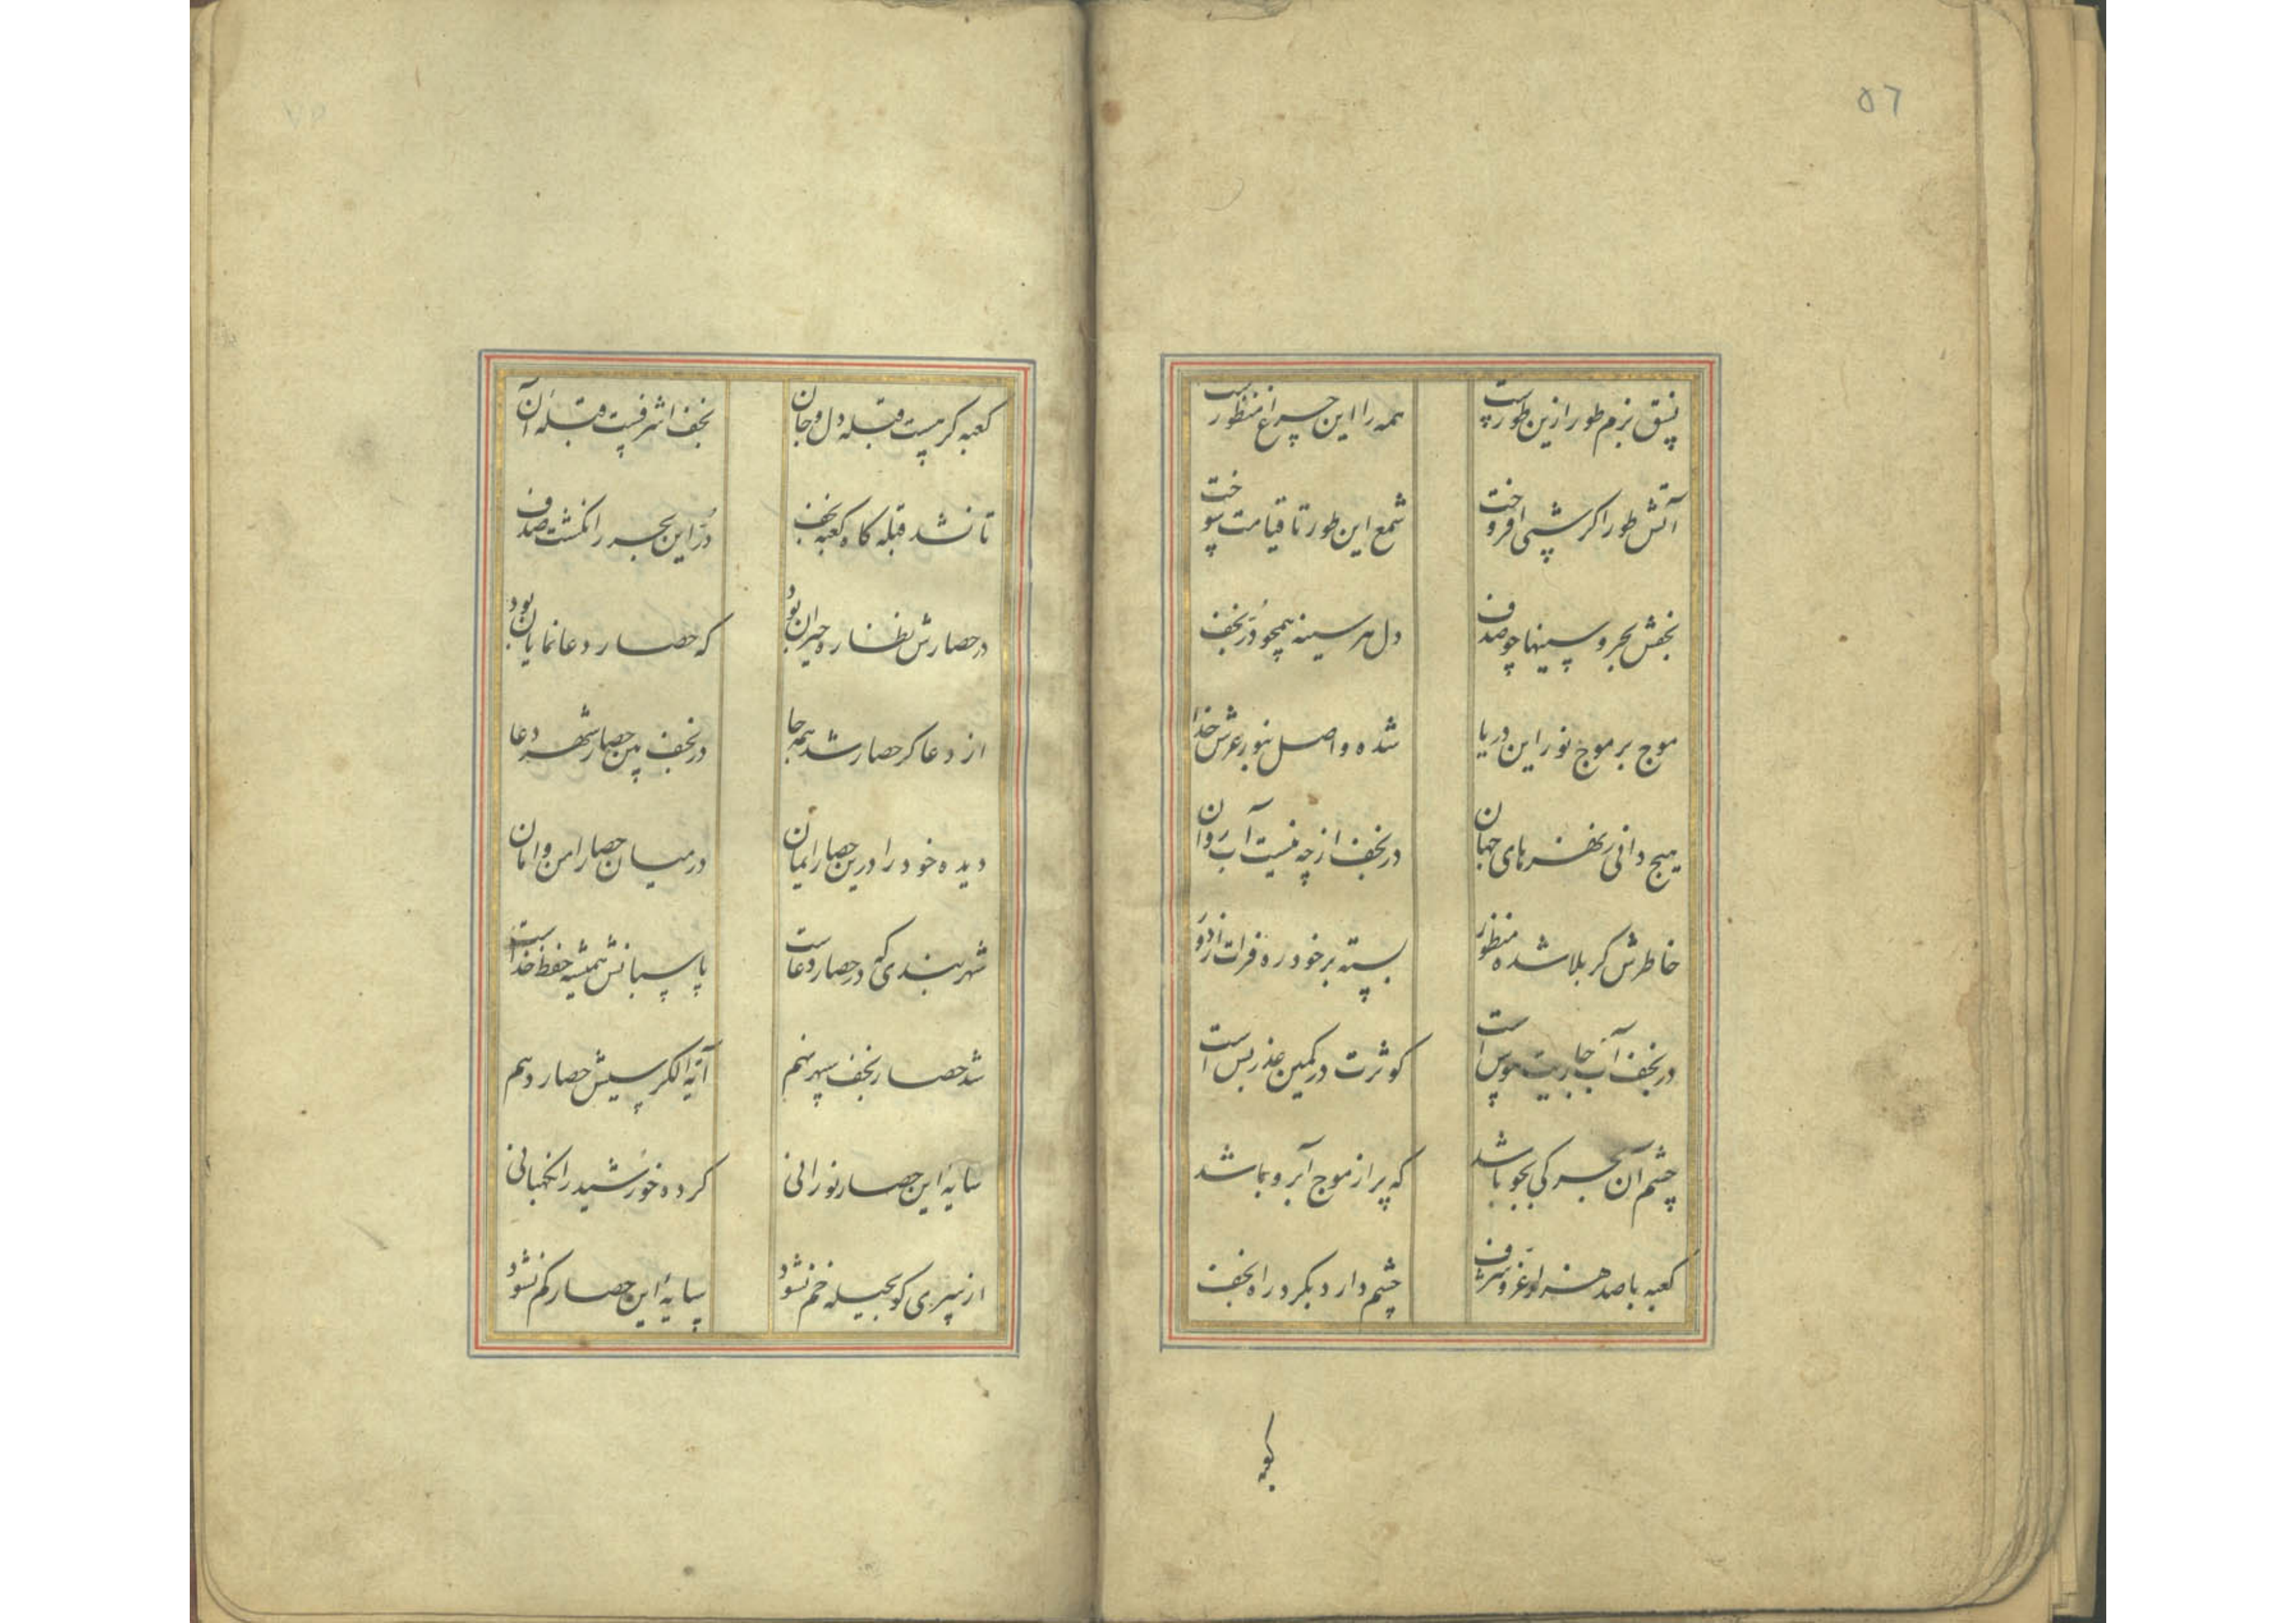 ٥٦
نسق بزم طور ازین طورست همه را این چراغ منظورست
آتش طور اکر شبی افروخت شمع این طور تا قیامت سوخت
نجفش بحر و سینها چو صدف دل هر سینه همچو دُرّ نجف
موج بر موج نور این دریا شده واصل بنور عرش خدا
هیچ دانی ز نهرهای جهان در نجف از چه نیست آب روان
خاطرش کربلا شده منظور بسته بر خود ره فرات از دور
در نجف آب جاریت هوس است کوثرت در کمین عذر بس است
چشم آن بحر کی بجو باشد که پر از موج آبرو باشد
کعبه با صد هزار عزّ و شرف چشم دارد بکرد راه نجف
کعبه
کعبه کر هست قبله دل و جان نجف اشرفست قبلهٔ آن
تا نشد قبله کاه کعبه نجف دُرّ این بحر را نکشت صدف
در حصارش نظاره حیران بود که حصار دعا نمایان بود
از دعا کر حصار شد همه جا در نجف بین حصار شهر دعا
دیده خود را درین حصار ایمان در میان حصار امن و امان
شهربندی که در حصار دعاست پاسبانش همیشه حفظ خداست
شد حصار نجف سپهر نهم آیة الکرسیش حصار دهم
سایهٔ این حصار نورانی کرده خورشید را نکهبانی
از سپری کو بحیله خم نشود سایهٔ این حصار کم نشود